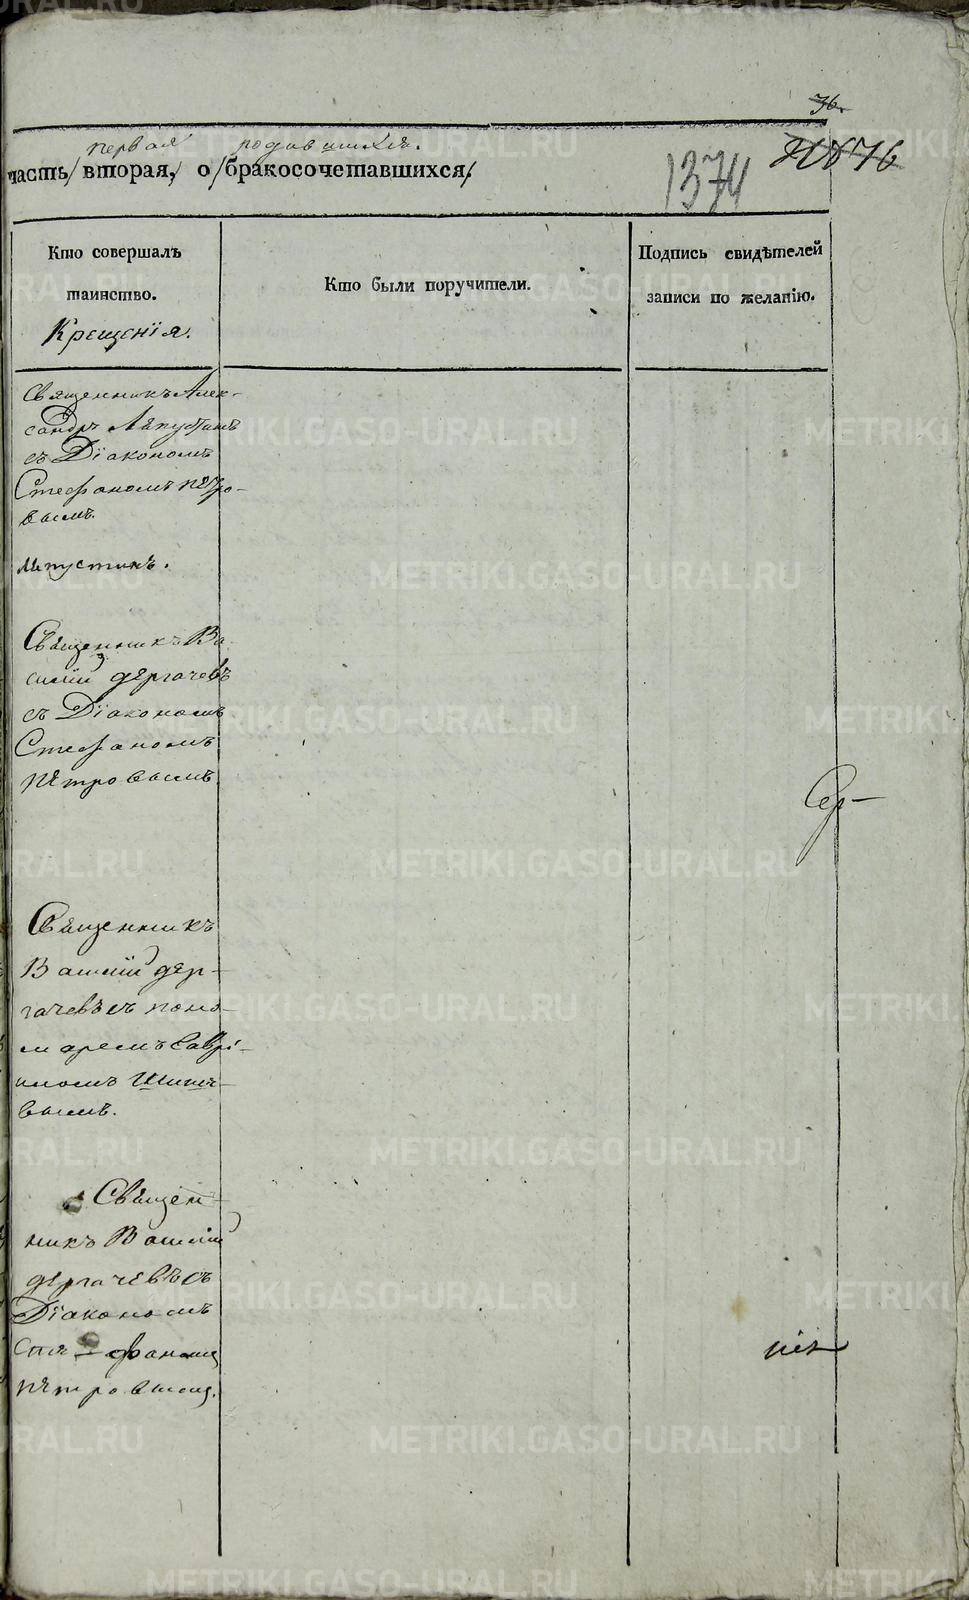 36.
первая родившихся.
часть /вторая,/ о /бракосочетавшихся/
1374
Кто совершалъ
таинство.
Крещенія.
Кто были поручители.
Подпись свидѣтелей
записи по желанію.
Священникъ Алек-
сандръ Ляпустинъ
съ Діакономъ
Стефаномъ Петро-
вымъ.
Ляпустинъ.
Священникъ Ва
силій Дергачевъ
съ Діакономъ
Стефаномъ
Петровымъ.
Священникъ
Василій Дер-
гачевъ съ поно-
маремъ Гаврі-
иломъ
вымъ.
Священ-
никъ Василій
Дергачевъ съ
Діакономъ
Сте-фаномъ
Петровымъ.
METRIKI.GASO-URAL.RU